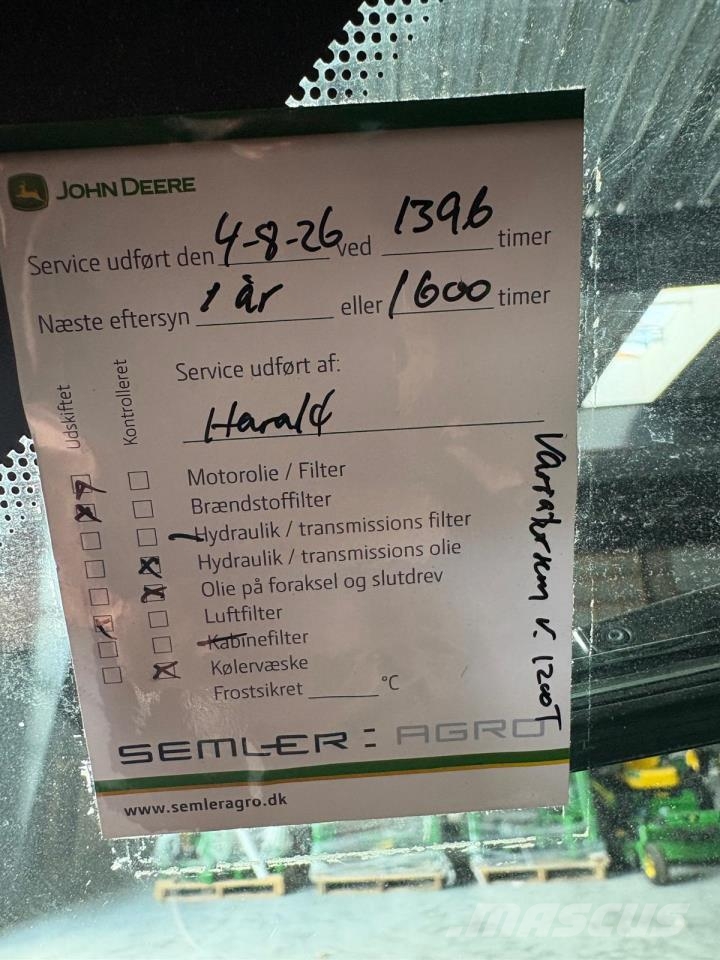 JOHN DEERE
Service udført den 4-8-26 ved 1396 timer
Næste eftersyn 1 år eller 1600 timer
Udskiftet
Kontrolleret
Service udført af:
Harald
Motorolie / Filter
Brændstoffilter
Hydraulik / transmissions filter
Hydraulik / transmissions olie
Olie på foraksel og slutdrev
Luftfilter
Kabinefilter
Kølervæske
Frostsikret ______ °C
v. 1200T
SEMLER AGRO
www.semleragro.dk
MASCUS